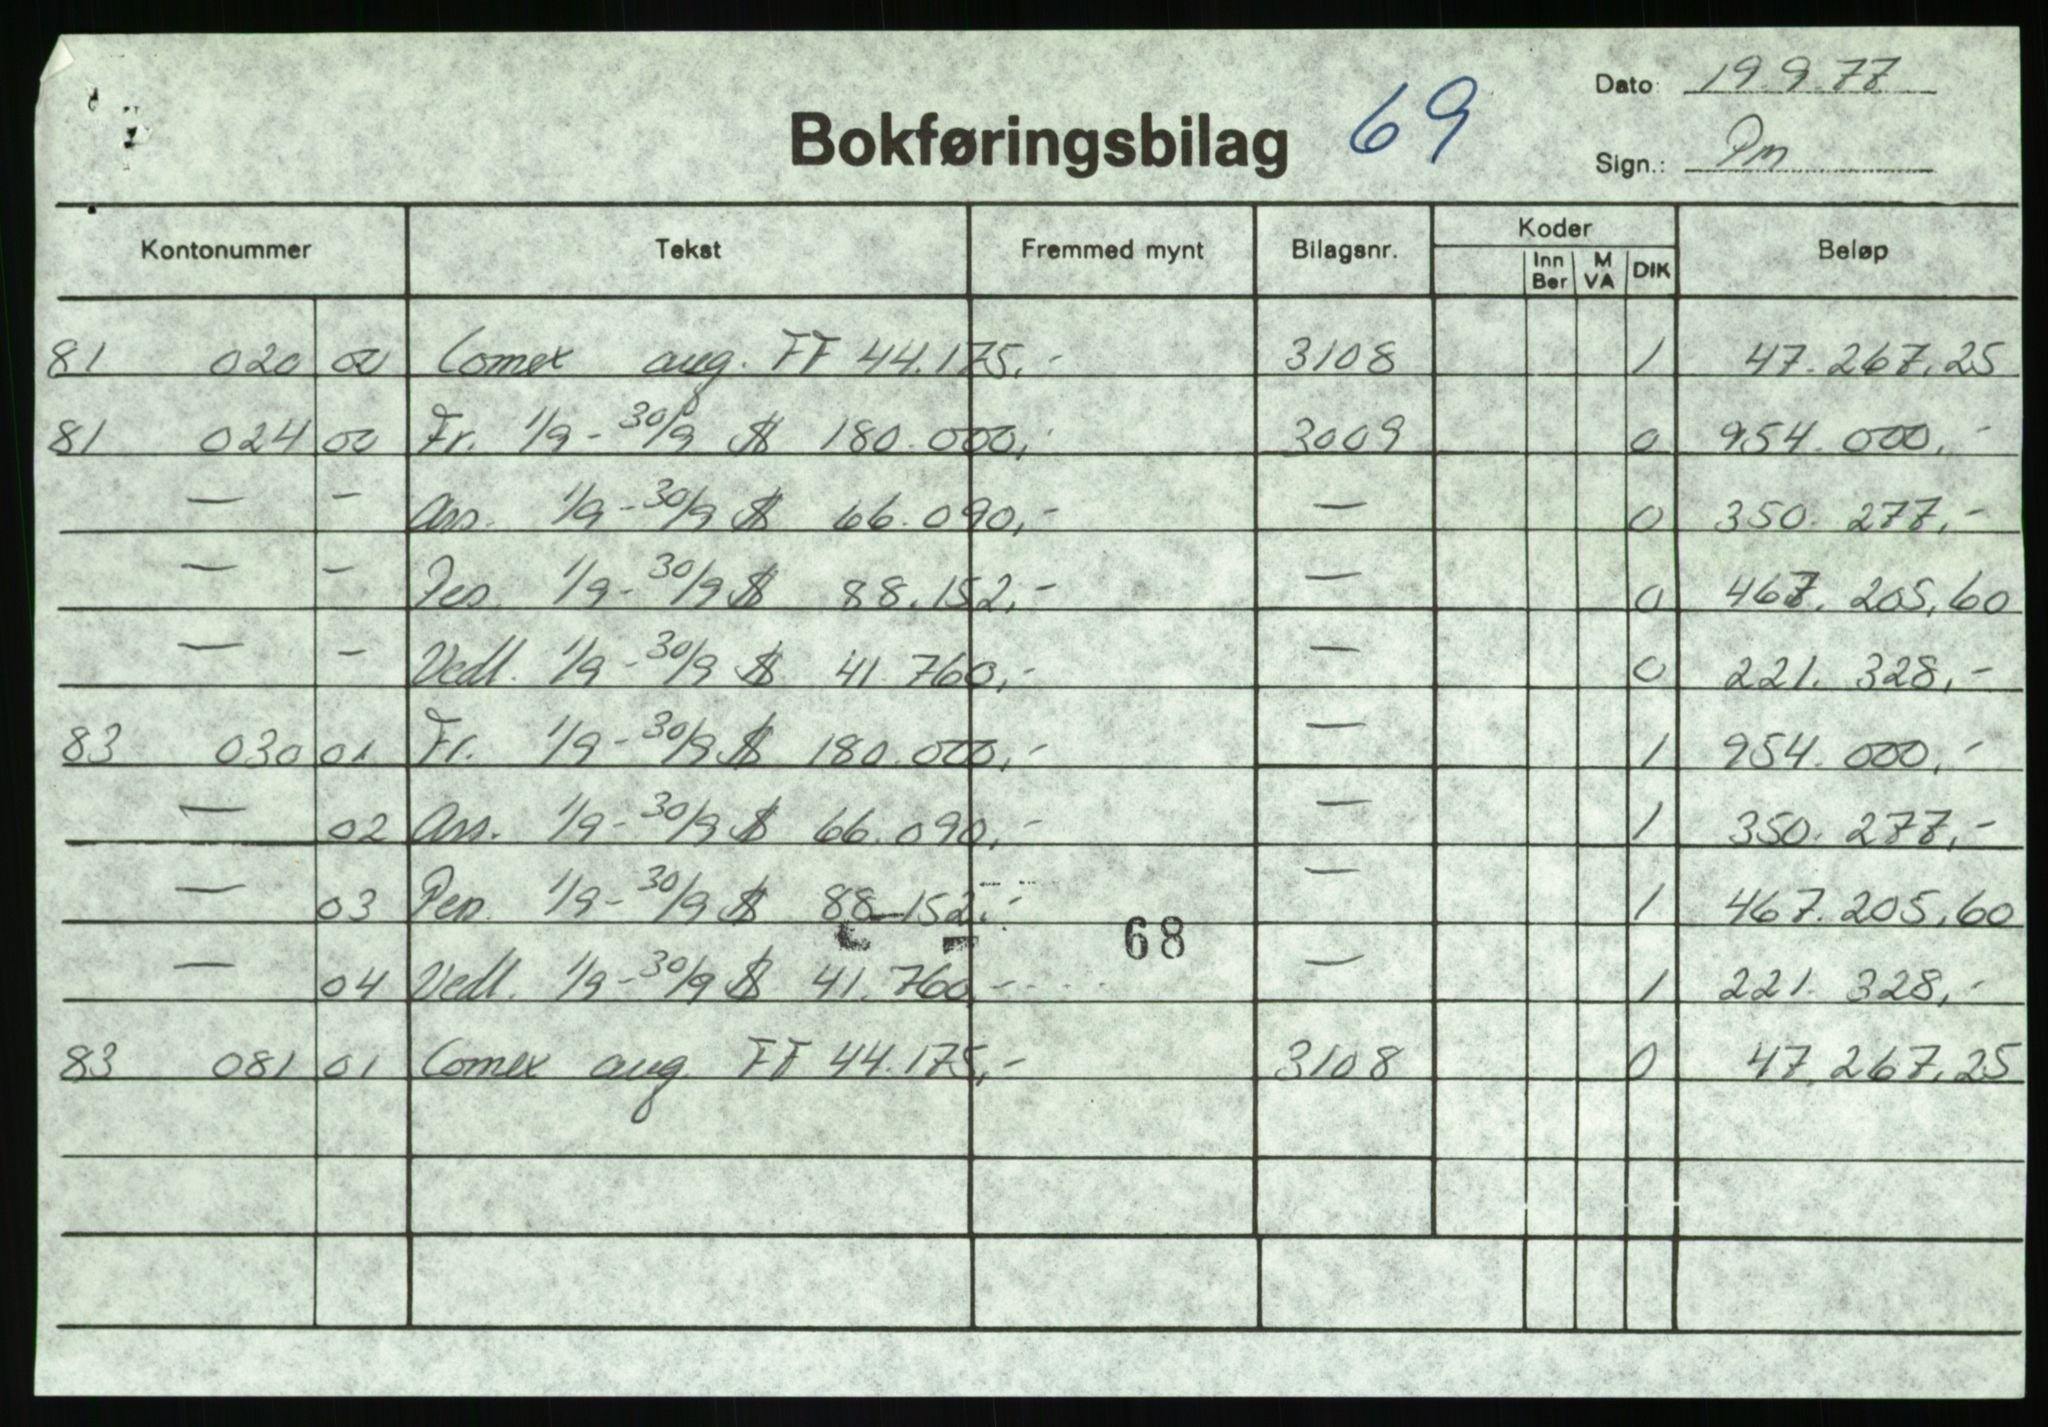 Dato: 19.9.77
Bokføringsbilag 69
Sign.: Pm
Kontonummer Tekst Fremmed mynt Bilagsnr. Koder Beløp
Inn Ber M VA DIK
81 020 00 Comex aug. FF 44.175,- 3108 1 47.267,25
81 024 00 Fr. 1/9-30/9 $ 180.000,- 3009 0 954.000,-
— - Ass. 1/9-30/9 $ 66.090,- — 0 350.277,-
— - Per. 1/9-30/9 $ 88.152,- — 0 467.205,60
— - Vedl. 1/9-30/9 $ 41.760,- — 0 221.328,-
83 030 01 Fr. 1/9-30/9 $ 180.000,- — 1 954.000,-
— 02 Ass. 1/9-30/9 $ 66.090,- — 1 350.277,-
— 03 Per. 1/9-30/9 $ 88.152,- — 1 467.205,60
68
— 04 Vedl. 1/9-30/9 $ 41.760,- — 1 221.328,-
83 081 01 Comex aug. FF 44.175,- 3108 0 47.267,25